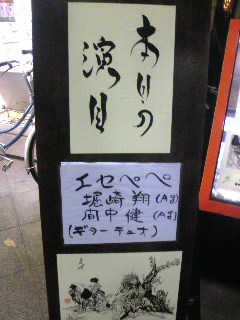 本日の
演目
エセペペ
堀崎翔(A.G)
高中健(A.G)
(ギターデュオ)